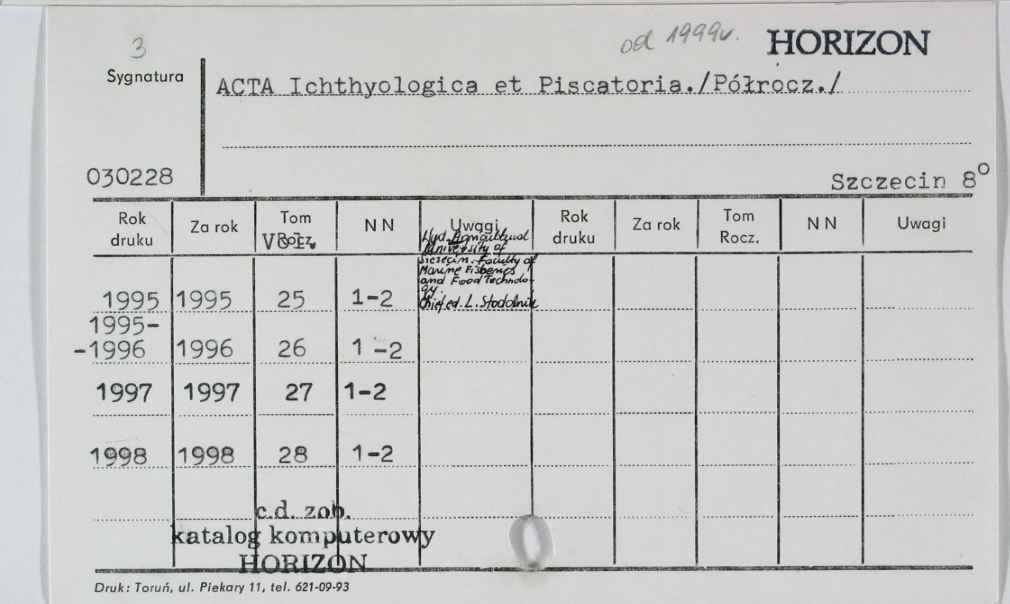 3 od 1999r. HORIZON
Sygnatura
ACTA Ichthyologica et Piscatoria./Półrocz./
030228 Szczecin 8°
Rok druku Za rok Tom Rocz. N N Uwagi Rok druku Za rok Tom Rocz. N N Uwagi
Wyd. Agricultural
University of
Szczecin. Faculty of
Marine Fisheries
and Food Technolo-
gy.
Chief ed. L. Stodolnik
1995 1995 25 1-2
1995-
-1996 1996 26 1 -2
1997 1997 27 1-2
1998 1998 28 1-2
c.d. zob.
katalog komputerowy
HORIZON
Druk: Toruń, ul. Piekary 11, tel. 621-09-93